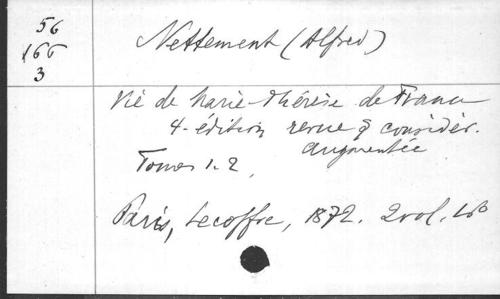 56
166
3
Nettement (Alfred)
Vie de Marie-Thérèse de France
4. édition revue & considér.
augmentée
Tomes 1. 2.
Paris, Lecoffre, 1872. 2 vol. 16°